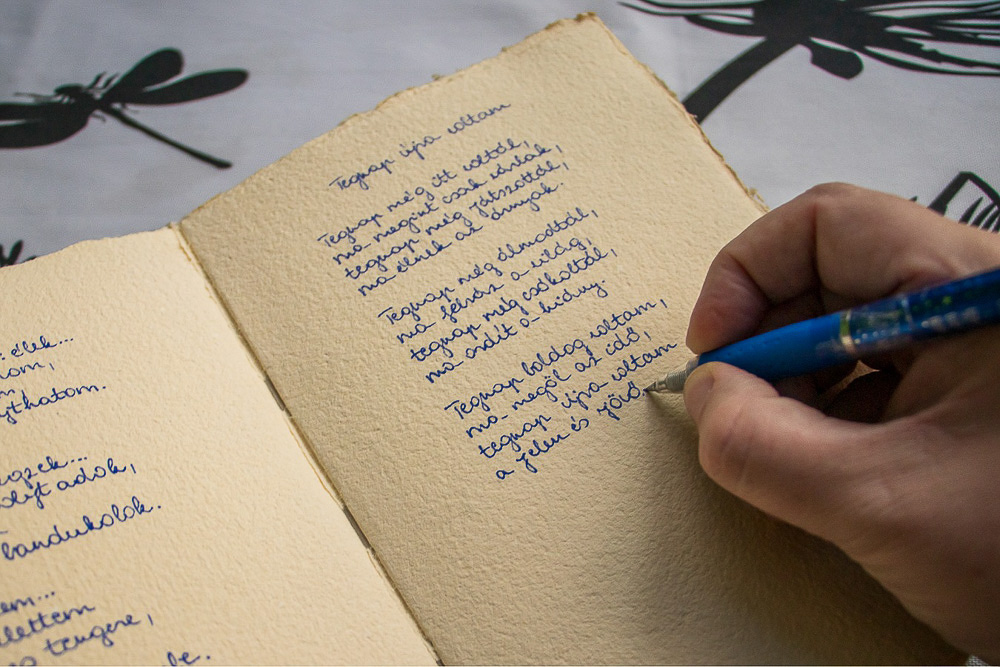 : élek...
nom,
jthatom.
egzek...
olyt adok,
bandukolok.
em...
lettem
tengere,
le.
Tegnap újra voltam
Tegnap még itt voltál,
ma megint csak várlak,
tegnap még játszottál,
ma élnek az árnyak.
Tegnap még álmodtál,
ma felráz a világ,
tegnap még csókoltál,
ma ordít a hiány.
Tegnap boldog voltam,
ma megöl az idő,
tegnap újra voltam
a jelen és jövő.